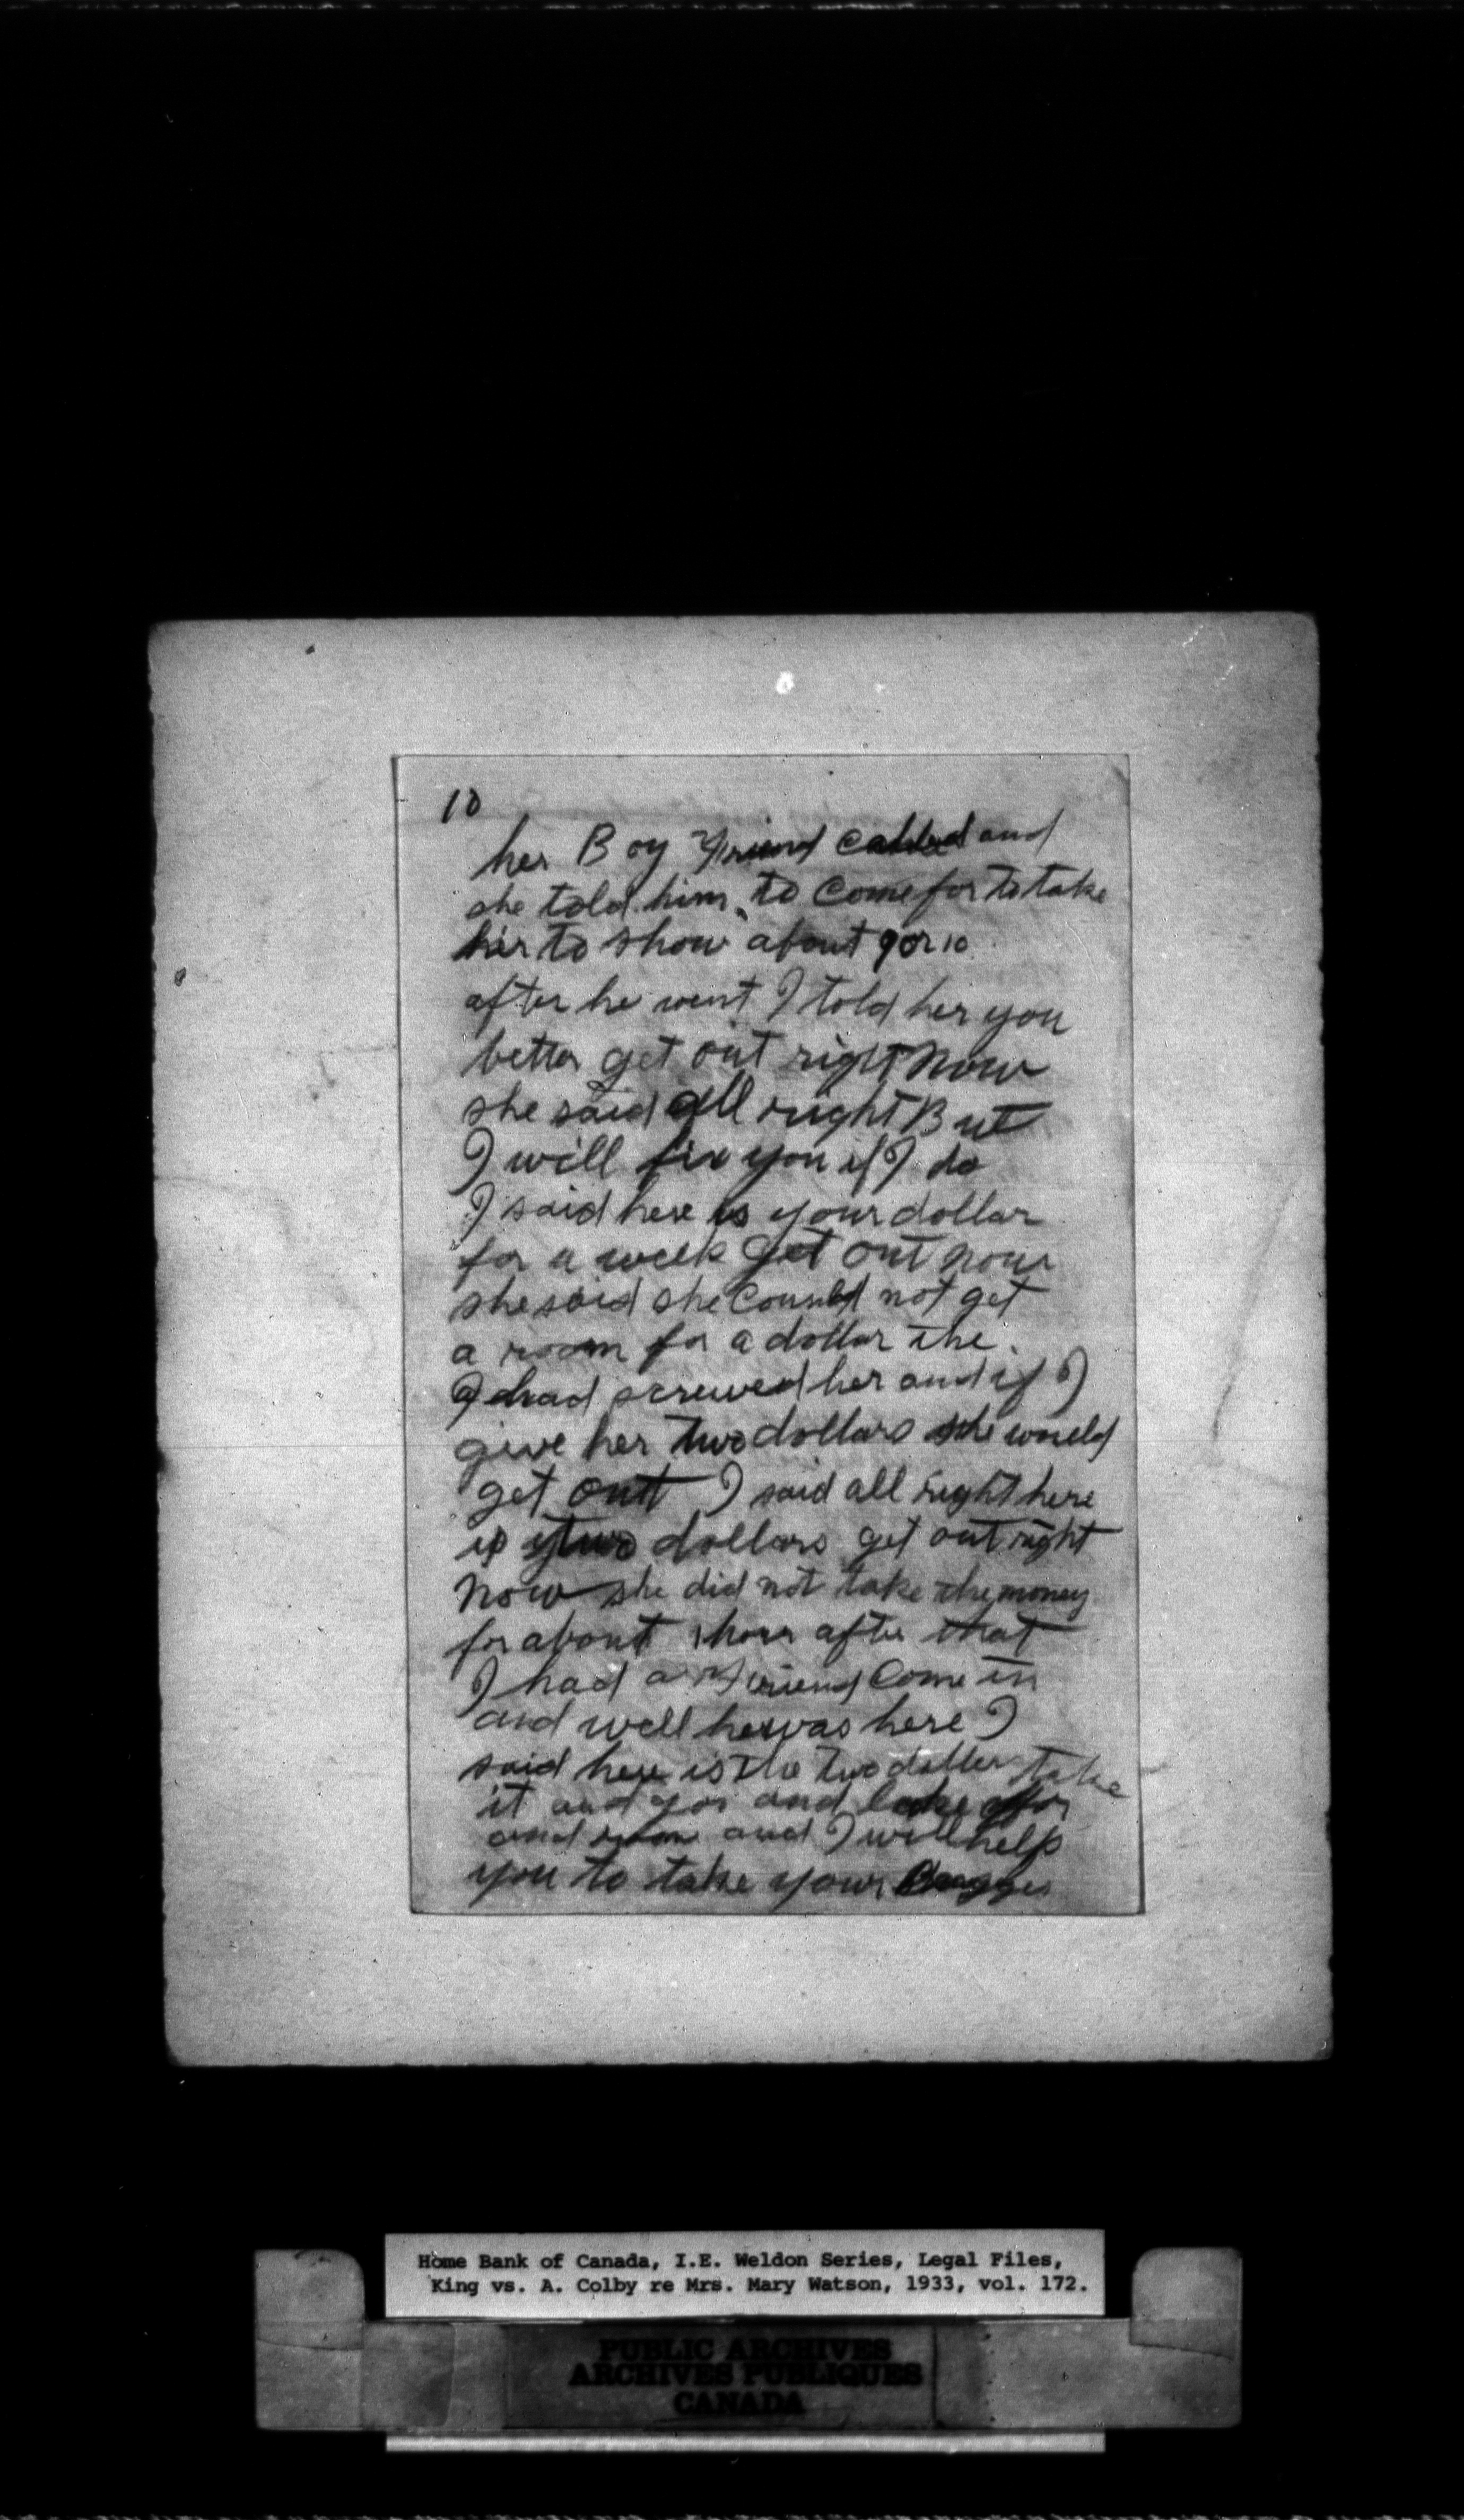 10
her Boy Friend called and
she told him to Come for to take
her to show about 9 or 10
after he went I told her you
better get out right now
she said all right But
I will fix you if I do
I said here is your dollar
for a week get out now
she said she could not get
a room for a dollar the
I had screwed her and if I
give her two dollars she would
get out I said all right here
is two dollars get out right
now she did not take the money
for about 1 hour after that
I had a Friend Come in
and well he was here I
said here is the two dollar take
it and go and look for
and room and I will help
you to take your Bagges
Home Bank of Canada, I.E. Weldon Series, Legal Files,
King vs. A. Colby re Mrs. Mary Watson, 1933, vol. 172.
PUBLIC ARCHIVES
ARCHIVES PUBLIQUES
CANADA